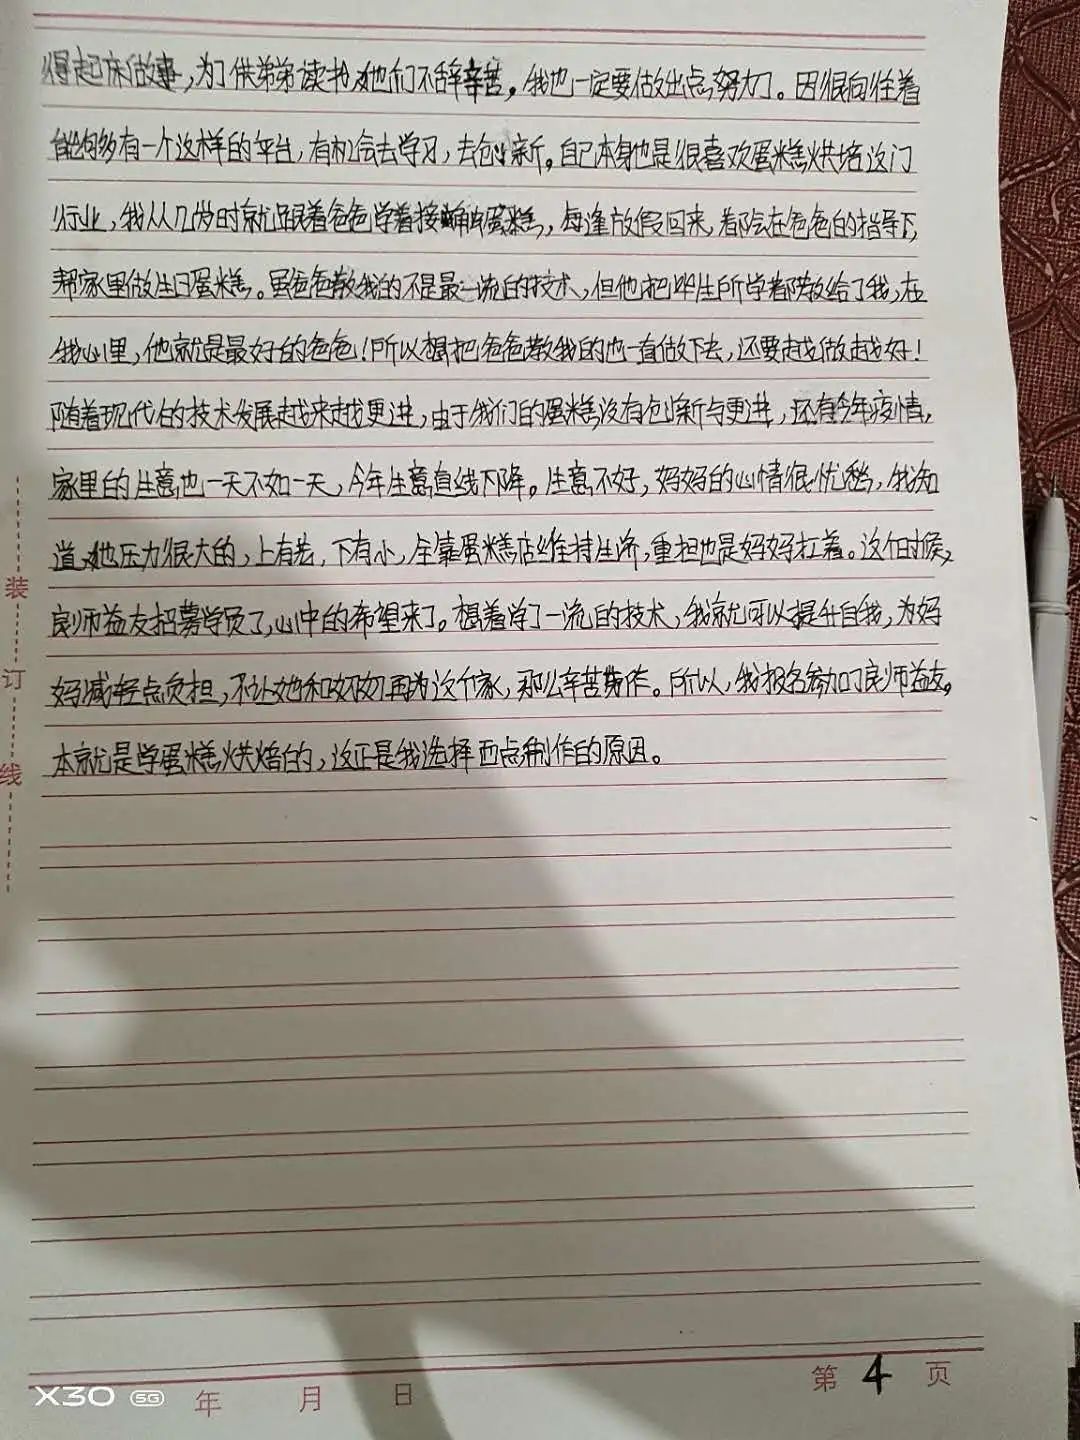 得起床做事，为了供弟弟读书，她们不辞辛苦，我也一定要做出点努力。因很向往着
能够多有一个这样的平台，有机会去学习，去创新。自己本身也是很喜欢蛋糕烘培这门
行业，我从几岁时就跟着爸爸学着接触蛋糕，每逢放假回来，都会在爸爸的指导下，
帮家里做生日蛋糕。虽爸爸教我的不是最一流的技术，但他把毕生所学都教给了我，在
我心里，他就是最好的爸爸！所以想把爸爸教我的也一直做下去，还要越做越好！
随着现代的技术发展越来越更进，由于我们的蛋糕没有创新与更进，还有今年疫情，
家里的生意也一天不如一天，今年生意直线下降。生意不好，妈妈的心情很忧愁，我知
道她压力很大的，上有老，下有小，全靠蛋糕店维持生济，重担也是妈妈扛着。这个时候，
良师益友招募学员了，心中的希望来了。想着学了一流的技术，我就可以提升自我，为妈
妈减轻点负担，不让她和奶奶再为这个家，那么辛苦劳作。所以，我报名参加了良师益友。
本就是学蛋糕烘焙的，这正是我选择西点制作的原因。
装
订
线
X30 5G
年 月 日
第 4 页